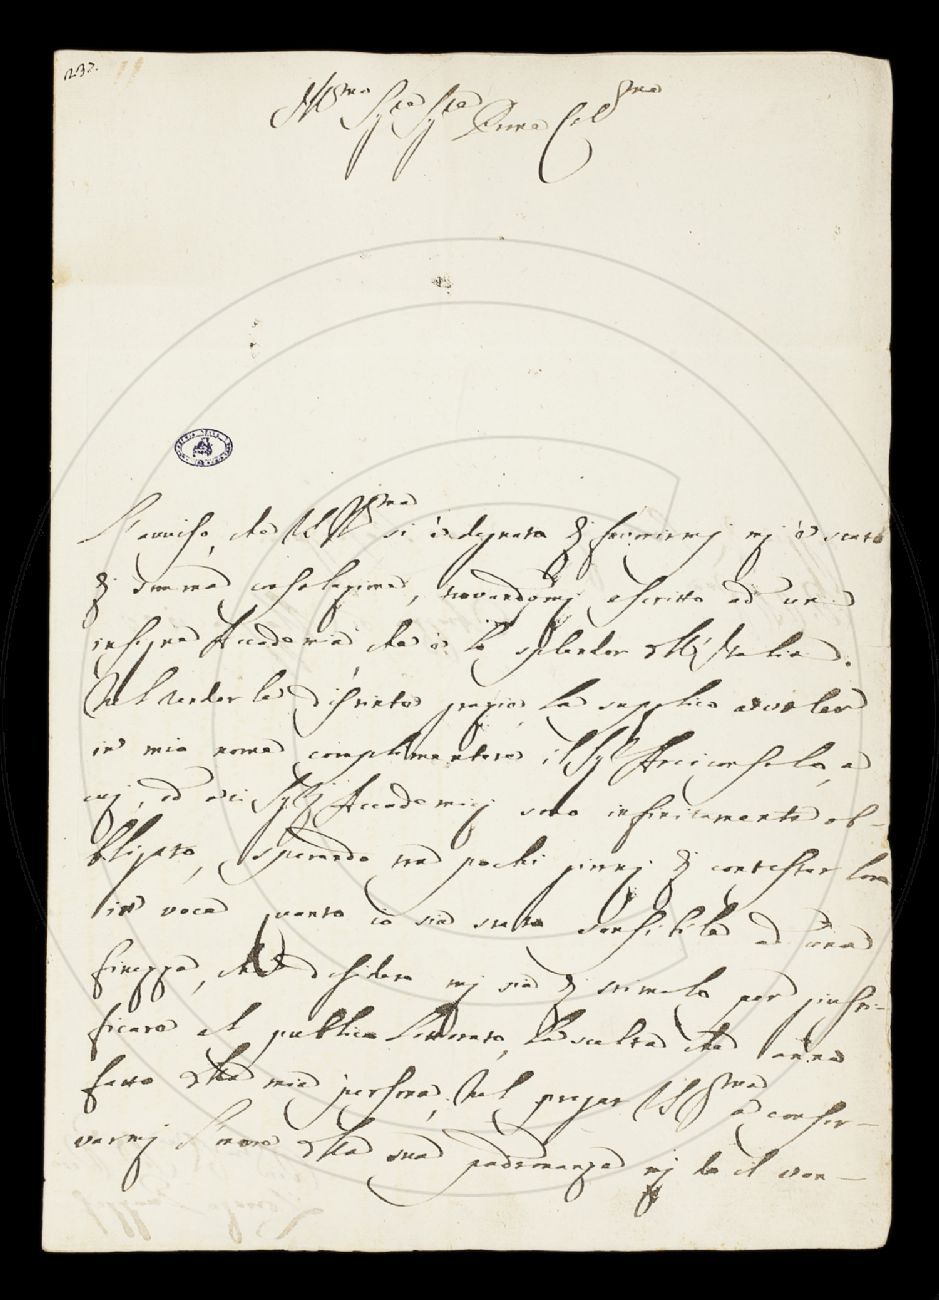 232.
Ill.mo Sig.re Sig.re Prone Col.mo
L'avviso, che VS Ill.ma si è degnata di favorirmi mi è stato
di somma consolazione, trovandomi ascritto ad una
insigne Accademia che è lo splendor dell'Italia.
Nel renderle distinte grazie, la supplico a voler
in mio nome complimentare il Sig.r Arciconsolo, a
cui, ed ai Sig.ri Accademici sono infinitamente ob-
bligato, sperando tra pochi giorni di contestar loro
in voce quanto io sia stato sensibile ad una
finezza, che desidero mi sia di stimolo per giusti-
ficare al publico letterato, la scelta che anno
fatto della mia persona; Nel pregar VS Ill.ma a conser-
varmi l'onore della sua padronanza mi do il van-